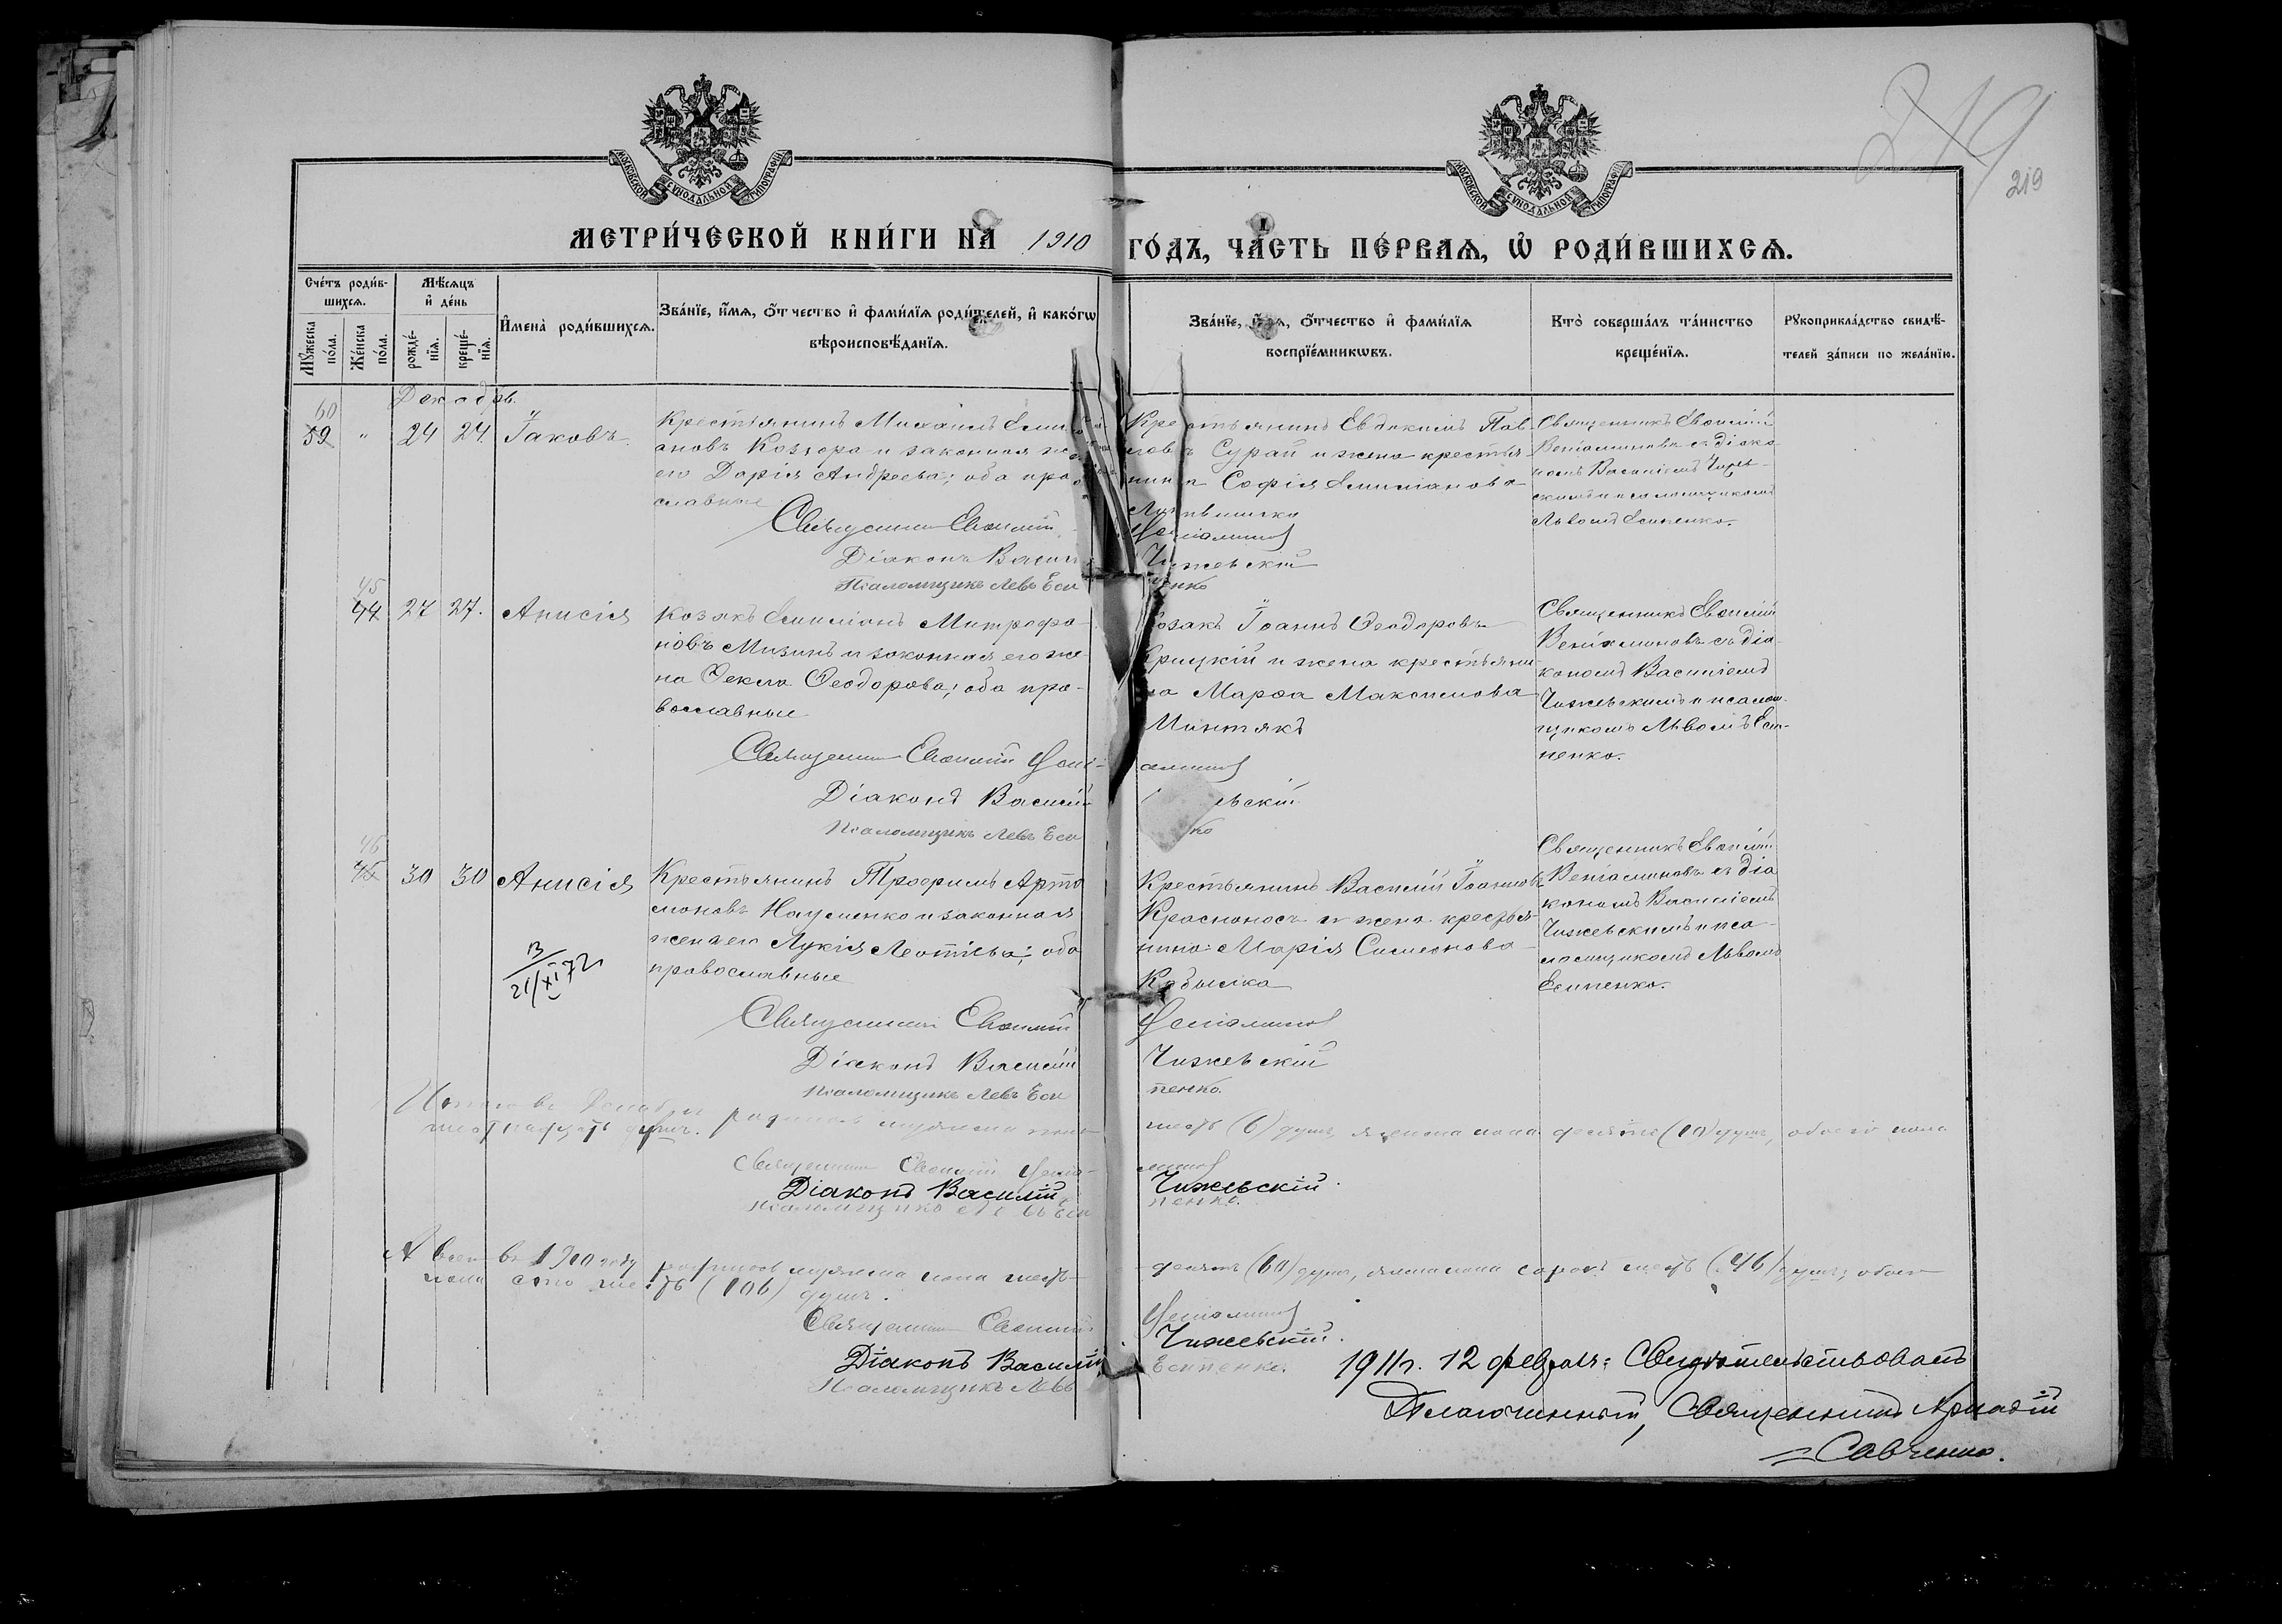 МОСКОВСКОЙ СѴНОДАЛЬНОЙ ТИПОГРАФІИ
МОСКОВСКОЙ СѴНОДАЛЬНОЙ ТИПОГРАФІИ
219
219
МЕТРИ́ЧЕСКОЙ КНИ́ГИ НА 1910
ГО́ДЪ, ЧА́СТЬ ПЕ́РВАѦ, Ѡ҆ РОДИ́ВШИХСѦ.
Сче́тъ роди́в-
шихсѧ.
Мѣ́сѧцъ
и҆ де́нь
Мꙋ́жеска
по́ла.
Же́нска
по́ла.
рожде́-
нїѧ.
креще́-
нїѧ.
И҆мена̀ роди́вшихсѧ.
Зва́нїе, и҆́мѧ, ѻ҆́тчество и҆ фамѝлїѧ роди́телей, и҆ како́гѡ
вѣроисповѣ́данїѧ.
Зва́нїе, и҆́мѧ, ѻ҆́тчество и҆ фамѝлїѧ
воспрїе́мникѡвъ.
Кто̀ соверша́лъ та́инство
креще́нїѧ.
Рꙋкоприкла́дство свидѣ́-
телей за́писи по жела́нїю.
Декабрь.
60
59 " 24 24. Іаковъ.
Крестьянинъ Михаилъ Емили
ановъ Козлора и законная же
его Дарія Андреева; оба пра
славные
Священникъ Евѳимій
Діаконъ Василій
Псаломщикъ Левъ Еси
Крестьянинъ Евдокимъ Пав-
ловъ Сурай и жена крестья-
нина Софія Емиліанова
Литвинка
Веніаминовъ
Чижевскій
пенко
Священникъ Евѳимій
Веніаминовъ съ діако-
номъ Василіемъ Чижев-
скимъ и псаломщикомъ
Львомъ Есипенко.
45
44 27 27. Анисія
Козакъ Емиліанъ Митрофа-
новъ Мизинъ и законная его же
на Ѳекла Ѳеодорова; оба пра-
вославные
Священникъ Евѳимій Вені-
Діаконъ Василій
Псаломщикъ Левъ Еси
Козакъ Іоаннъ Ѳеодоровъ
Крицкій и жена крестьяни
на Марѳа Максимова
Минтякъ
аминовъ
евскій
ко
Священникъ Евѳимій
Веніаминовъ съ діа-
кономъ Василіемъ
Чижевскимъ и псалом-
щикомъ Львомъ Еси-
пенко.
46
45 30 30 Анисія
Крестьянинъ Трофимъ Арта
моновъ Науменко и законная
жена его Лукія Леонтіева; оба
православные
В
21/XI 72
Священникъ Евѳимій
Діаконъ Василій
Псаломщикъ Левъ Еси
Крестьянинъ Василій Іоанновъ
Красноносъ и жена крестья-
нина Марія Симеонова
Кобылка
Веніаминовъ
Чижевскій
пенко.
Священникъ Евѳимій
Веніаминовъ съ діа
кономъ Василіемъ
Чижевскимъ и пса-
ломщикомъ Львомъ
Есипенко.
Итого въ Декабрѣ родилось мужеска пола
шесть (6) душъ, женска пола десять (10) душъ, обоего пола
шестнадцать душъ.
Священникъ Евѳимій Веніа-
миновъ
Діаконъ Василій
Чижевскій.
Псаломщикъ Левъ Еси
пенко.
А всего въ 1910 году родилось мужеска пола шесть-
десятъ (60) душъ, женска пола сорокъ шесть (46) душъ; обоего
пола сто шесть (106) душъ.
Священникъ Евѳимій
Веніаминовъ
Діаконъ Василій
Чижевскій.
Псаломщикъ Левъ
Есипенко.
1911 г. 12 февраля: Свидѣтельствовалъ
Благочинный, Священникъ Аркадій
Савченко.